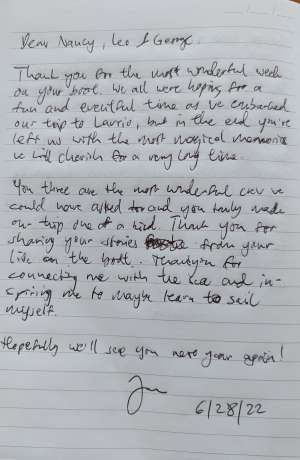 Dear Nancy, Leo & George.
Thank you for the most wonderful week
on your boat. We all were hoping for a
fun and eventful time as we embarked
our trip to Lavrio, but in the end you've
left us with the most magical memories
we will cherish for a very long time.
You three are the most wonderful crew we
could have asked for and you truly made
our trip one of a kind. Thank you for
sharing your stories from your
life on the boat. Thankyou for
connecting me with the sea and in-
spiring me to maybe learn to sail
myself.
Hopefully we'll see you next year again!
6/28/22